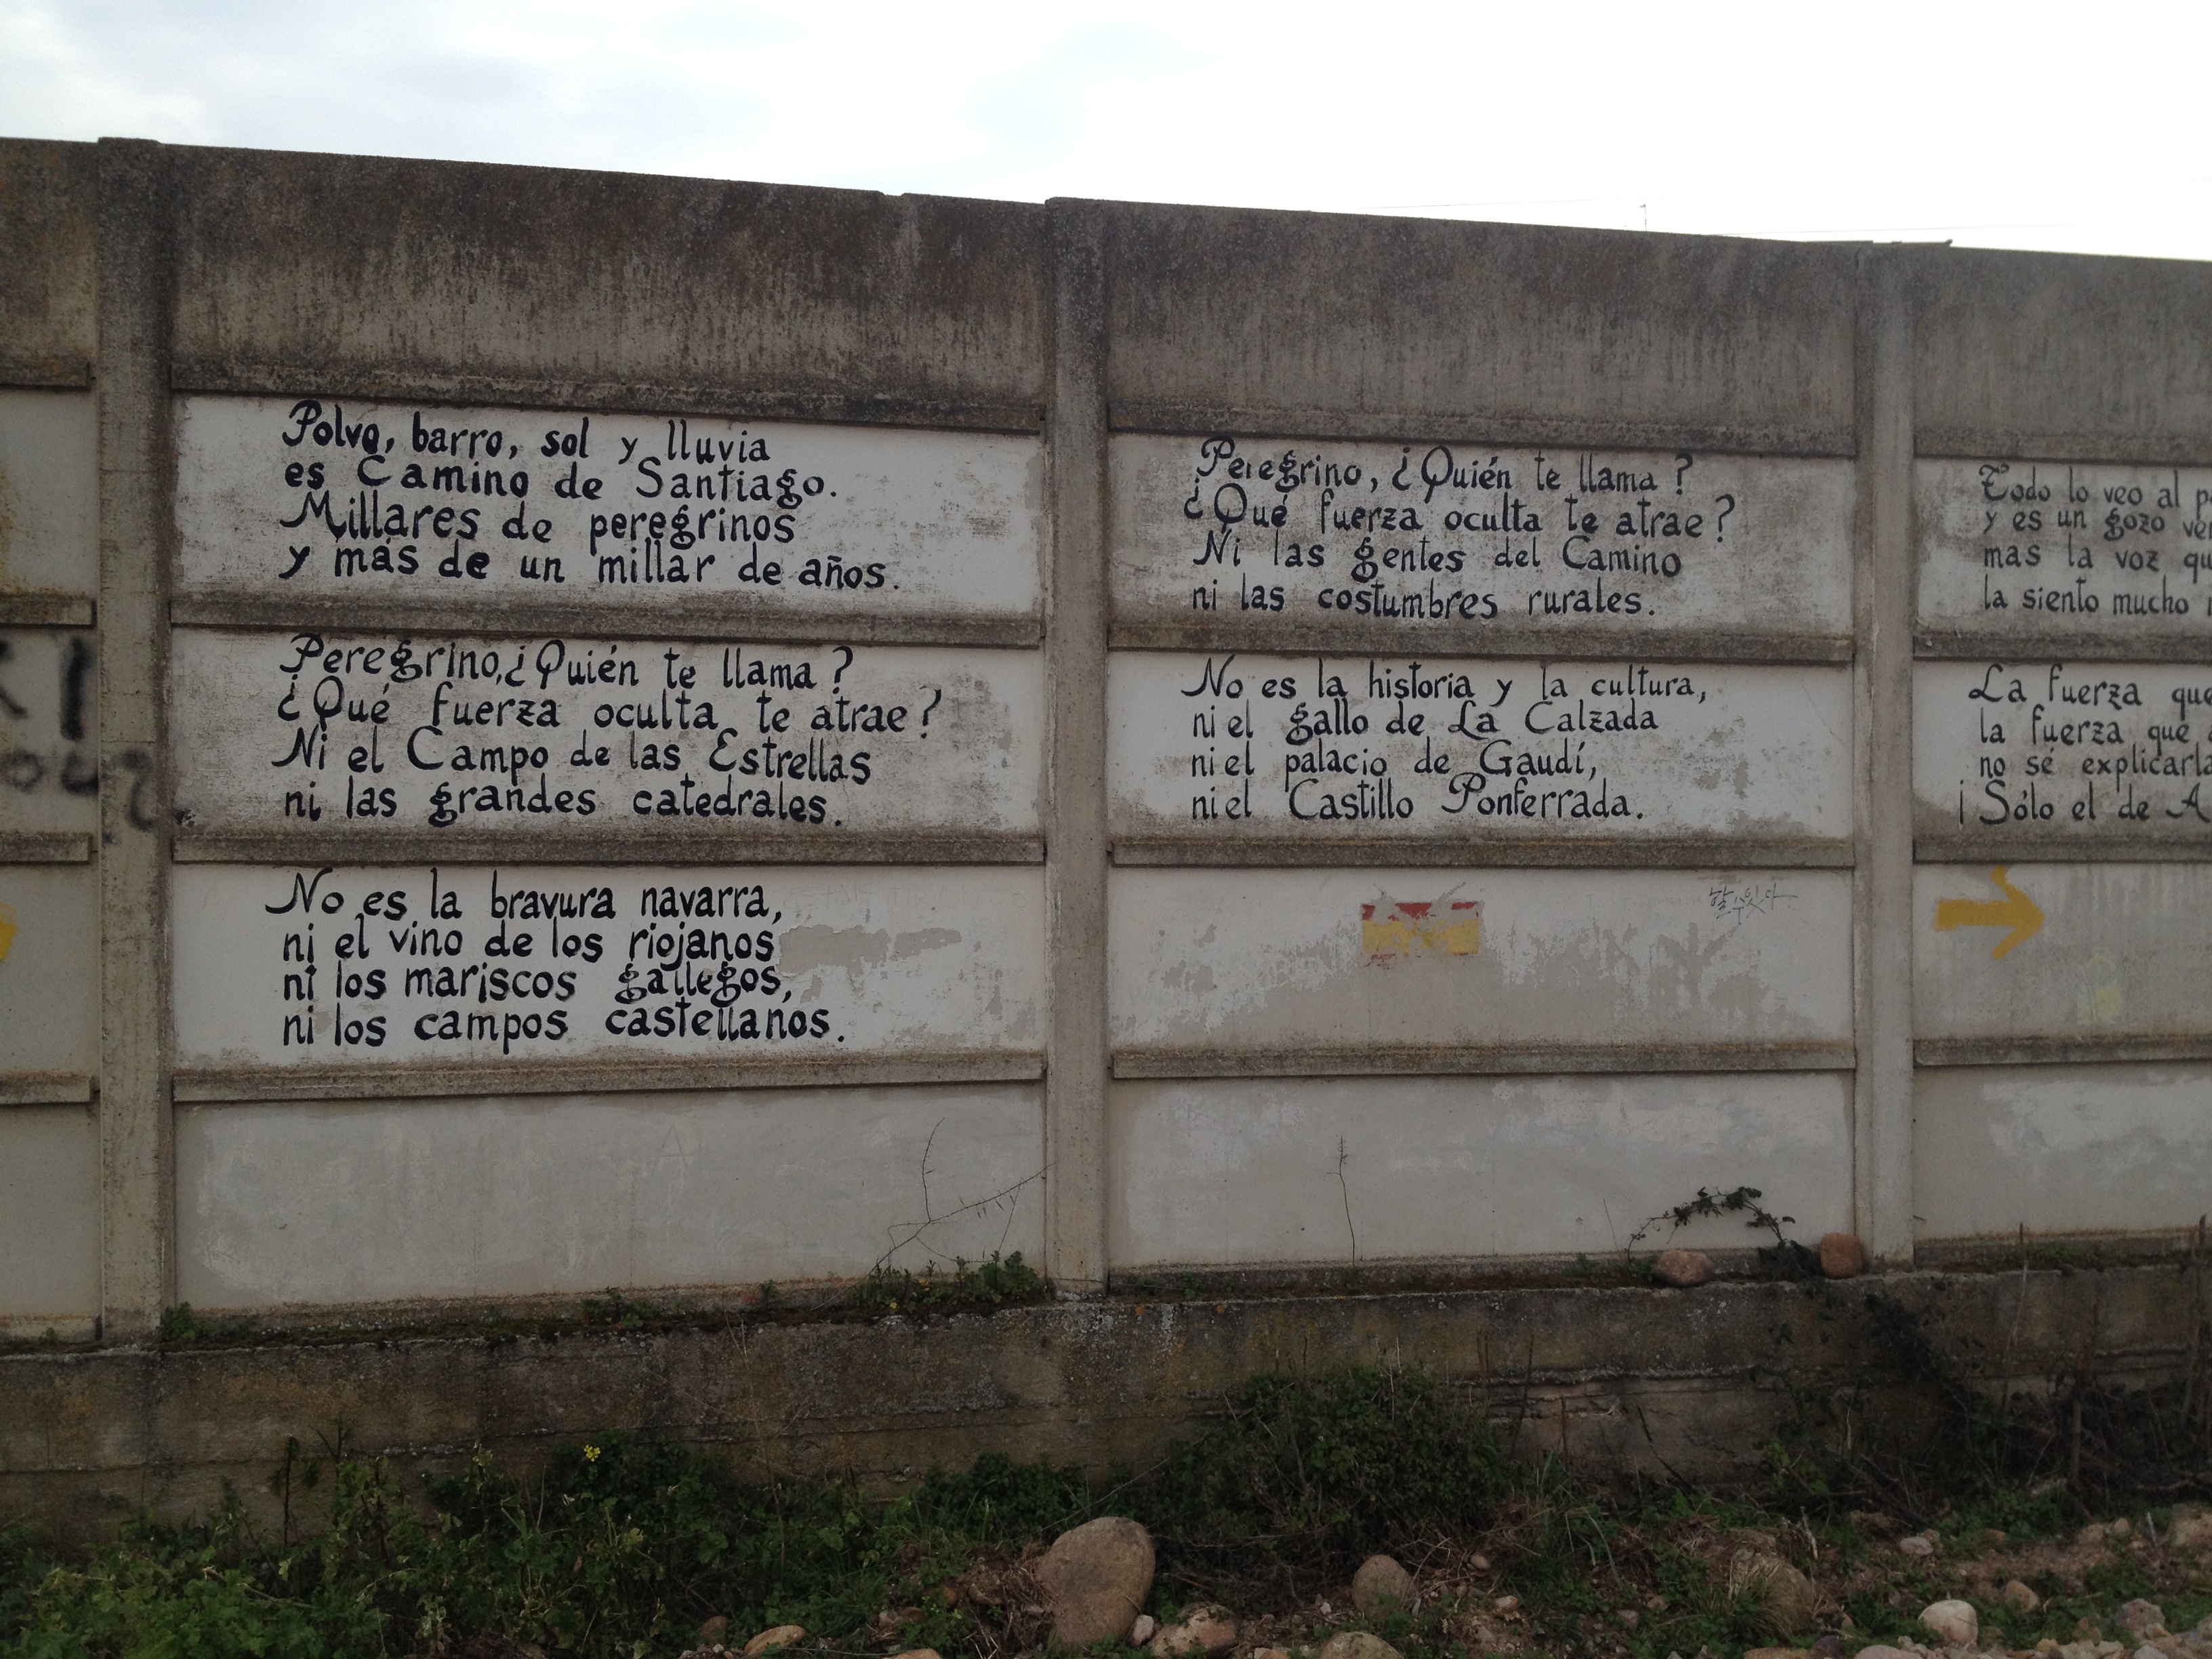 Polvo, barro, sol y lluvia
es Camino de Santiago.
Millares de peregrinos
y más de un millar de años.
Peregrino, ¿Quién te llama?
¿Qué fuerza oculta te atrae?
Ni el Campo de las Estrellas
ni las grandes catedrales.
No es la bravura navarra,
ni el vino de los riojanos
ni los mariscos gallegos,
ni los campos castellanos.
Peregrino, ¿Quién te llama?
¿Qué fuerza oculta te atrae?
Ni las gentes del Camino
ni las costumbres rurales.
No es la historia y la cultura,
ni el gallo de La Calzada
ni el palacio de Gaudí,
ni el Castillo Ponferrada.
할 수 있다
Todo lo veo al
y es un gozo
mas la voz
la siento mucho
La fuerza que
la fuerza que
no sé explicarla
¡Sólo el de